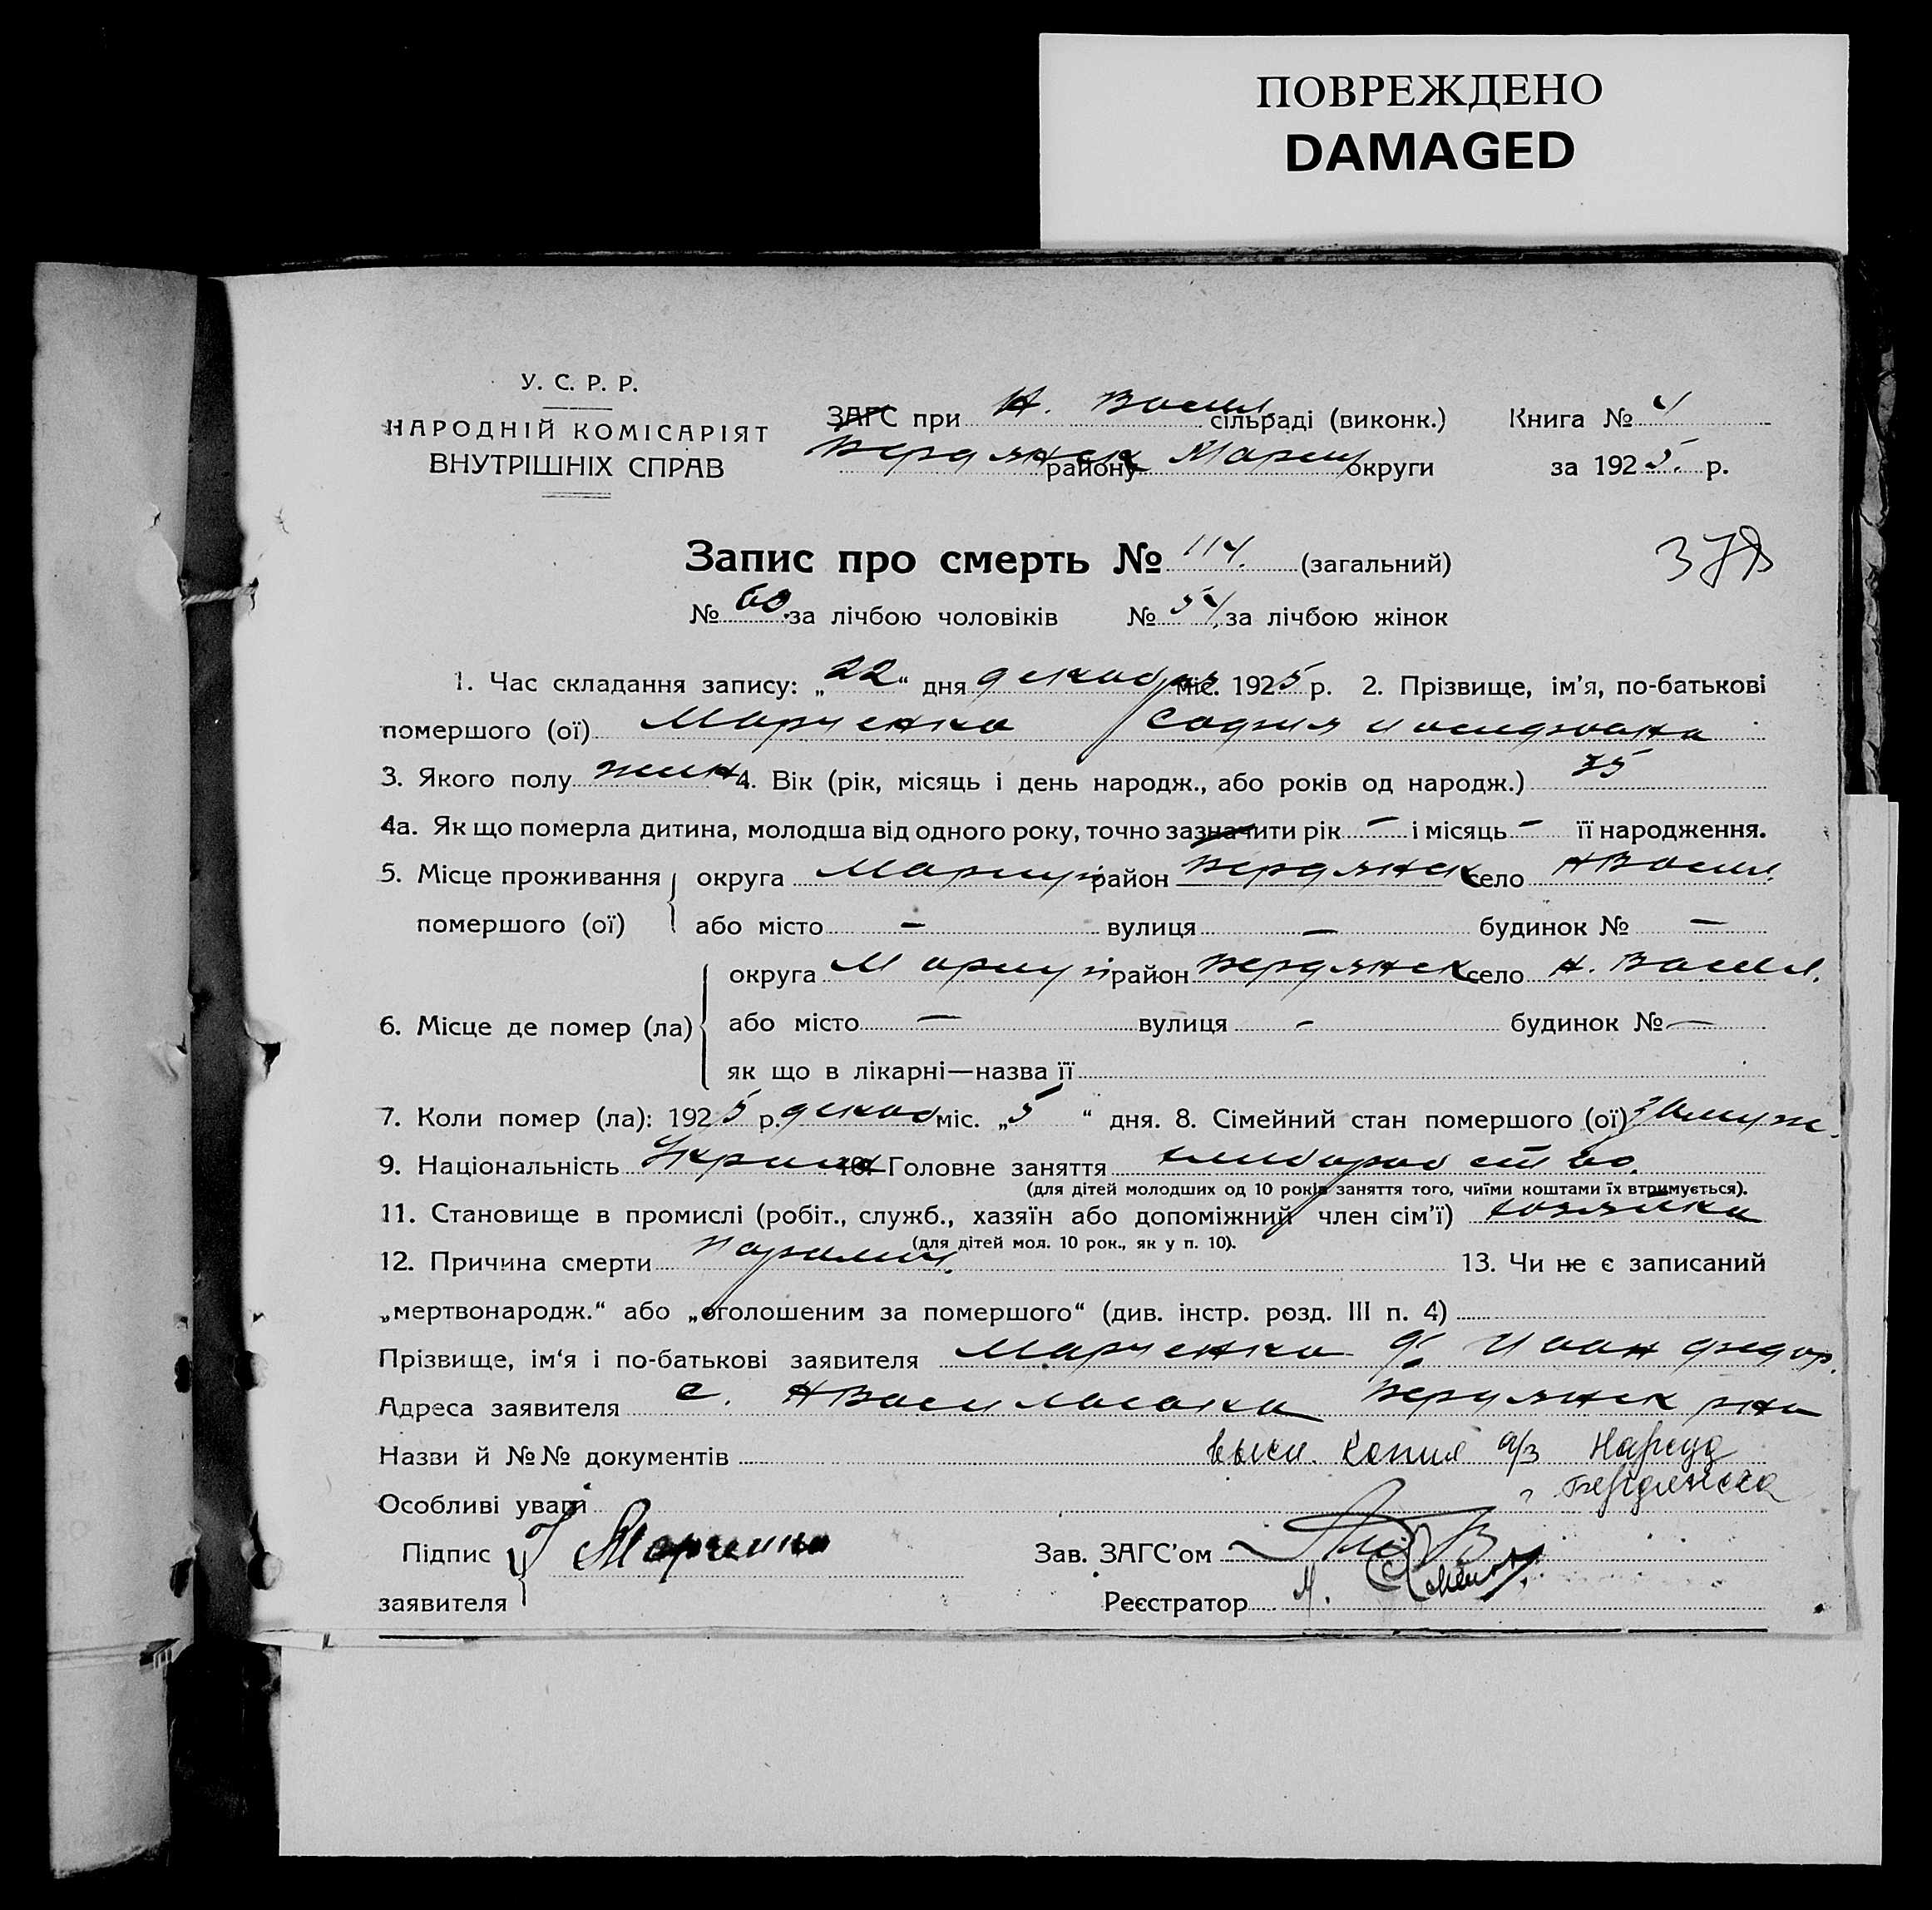 ПОВРЕЖДЕНО
DAMAGED
У. С. Р. Р.
НАРОДНІЙ КОМІСАРІЯТ
ВНУТРІШНІХ СПРАВ
ЗАГС при Н. Васил. сільраді (виконк.) Книга № 4
Бердянск району Мариу округи за 1925 р.
Запис про смерть № 114. (загальний)
№ 60. за лічбою чоловіків № 54, за лічбою жінок
1. Час складання запису: „22“ дня декабря міс. 1925 р. 2. Прізвище, ім'я, по-батькові
помершого (ої) Марченко София
3. Якого полу жен 4. Вік (рік, місяць і день народж., або років од народж.) 75
4а. Як що померла дитина, молодша від одного року, точно зазначити рік — і місяць — її народження.
5. Місце проживання округа Мариуп район Бердянск село НВасил.
помершого (ої) або місто — вулиця — будинок № —
округа Мариуп район Бердянск село Н. Васил.
6. Місце де помер (ла) або місто — вулиця — будинок № —
як що в лікарні—назва її
7. Коли помер (ла): 1925 р. декаб міс. „5“ дня. 8. Сімейний стан помершого (ої) замуж.
9. Національність 10. Головне заняття хлеборобство.
(для дітей молодших од 10 років заняття того, чиїми коштами їх втримується).
11. Становище в промислі (робіт., служб., хазяїн або допоміжний член сім'ї) хозяйка
(для дітей мол. 10 рок., як у п. 10).
12. Причина смерти паралич. 13. Чи не є записаний
„мертвонародж.“ або „оголошеним за помершого“ (див. інстр. розд. III п. 4)
Прізвище, ім'я і по-батькові заявителя Марченко Иван Федор.
Адреса заявителя с. НВасильевка Бердянск рна
Назви й №№ документів Копия Нарсуд
Особливі уваги Бердянска
Підпис Марченко Зав. ЗАГС'ом
заявителя Реєстратор